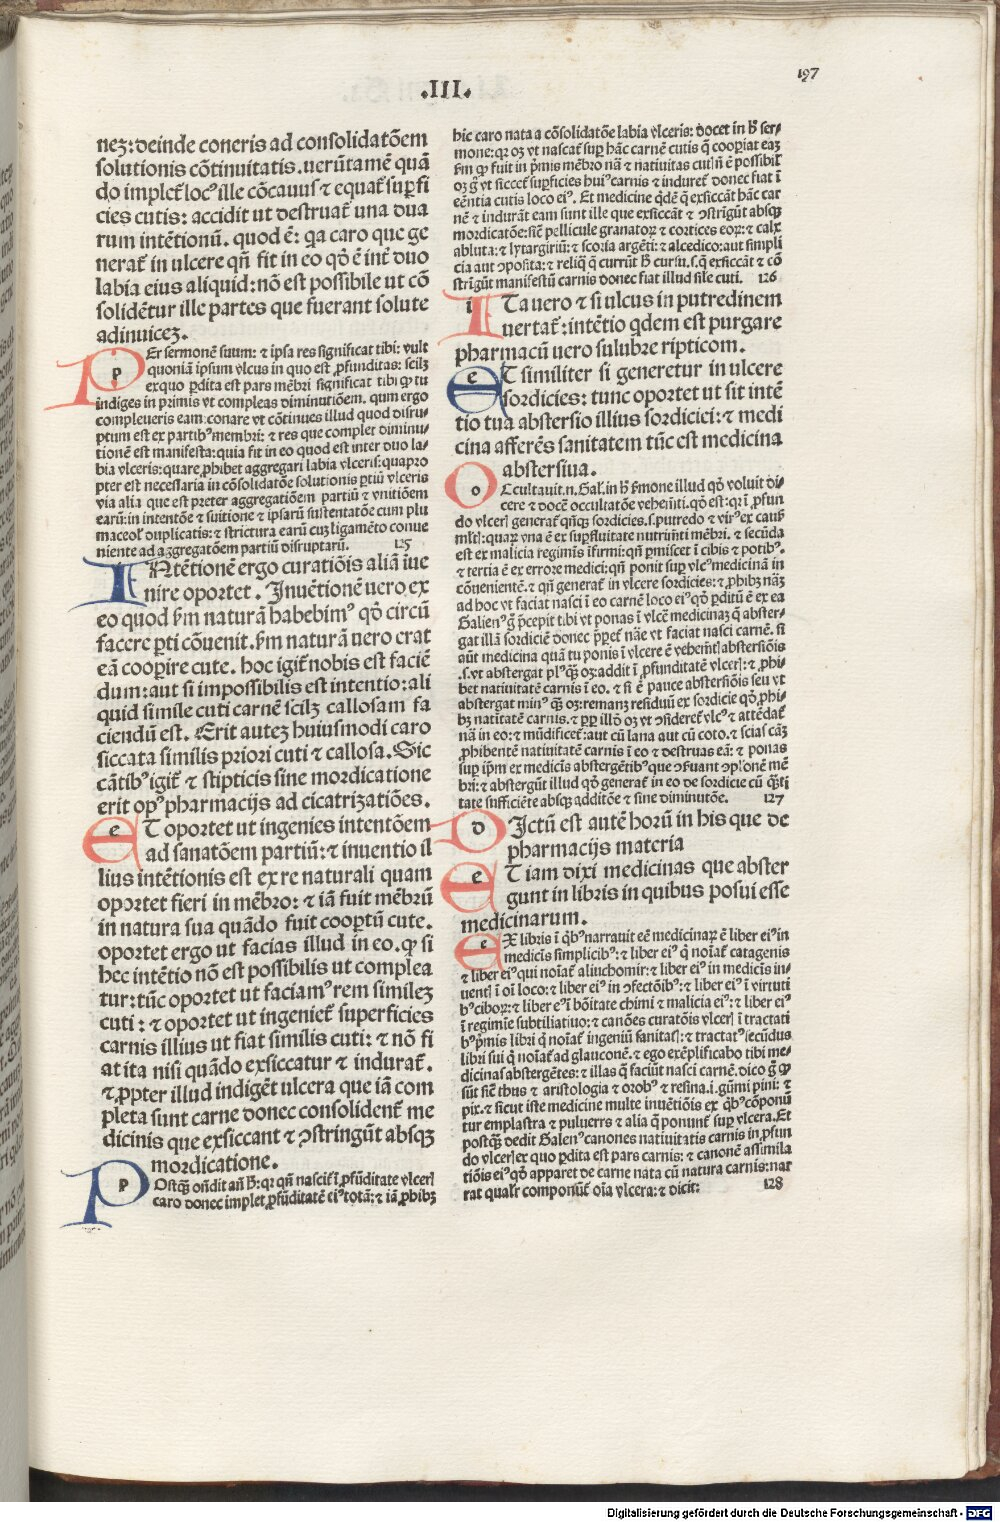 .III.
197
nez: deinde coneris ad consolidatõem
solutionis cõtinuitatis. uerũtamẽ quã
do implet᷑ locꝰ ille cõcauus ⁊ equat᷑ suꝑfi
cies cutis: accidit ut destruat᷑ una dua
rum intẽtionũ. quod ẽ: qa caro que ge
nerat᷑ in ulcere qñ fit in eo qđ ẽ int᷑ duo
labia eius aliquid: nõ est possibile ut cõ
solidẽtur ille partes que fuerant solute
adinuicez.
PEr sermonẽ suum: ⁊ ipsa res significat tibi: vult
quoniã ipsum vlcus in quo est ꝓfunditas: scilz
ex quo ꝑdita est pars mẽbri significat tibi ꝙ tu
indiges in primis vt compleas diminutiõem. qum ergo
compleueris eam: conare vt cõtinues illud quod disru-
ptum est ex partibꝰ membri: ⁊ res que complet diminu-
tionẽ est manifesta: quia fit in eo quod est inter duo la-
bia vlceris: quare ꝓhibet aggregari labia vlceris: quapro
pter est necessaria in cõsolidatõe solutionis ꝑtiũ vlceris
via alia que est preter aggregatiõem partiũ ⁊ vnitiõem
earũ: in intentõe ⁊ suitione ⁊ ipsarũ sustentatõe cum plu
maceol᷑ duplicatis: ⁊ strictura earũ cuz ligamẽto conue
niente ad aggregatõem partiũ disruptarũ. 125
INtẽtionẽ ergo curatiõis aliã iue
nire oportet. Inuẽtionẽ uero ex
eo quod ẜm naturã habebimꝰ qđ circũ
facere ꝑti cõuenit. ẜm naturã uero erat
eã cooꝑire cute. hoc igit᷑ nobis est faciẽ
dum: aut si impossibilis est intentio: ali
quid simile cuti carnẽ scilz callosam fa
ciendũ est. Erit autez huiusmodi caro
siccata similis priori cuti ⁊ callosa. Sic
cãtibꝰ igit᷑ ⁊ stipticis sine mordicatione
erit opꝰ pharmacijs ad cicatrizatiões.
ET oportet ut ingenies intentõem
ad sanatõem partiũ: ⁊ inuentio il
lius intẽtionis est ex re naturali quam
oportet fieri in mẽbro: ⁊ iã fuit mẽbrũ
in natura sua quãdo fuit cooꝑtũ cute.
oportet ergo ut facias illud in eo. ꝙ si
hec intẽtio nõ est possibilis ut complea
tur: tũc oportet ut faciamꝰ rem similez
cuti: ⁊ oportet ut ingeniet᷑ superficies
carnis illius ut fiat similis cuti: ⁊ nõ fi
at ita nisi quãdo exsiccatur ⁊ indurat᷑.
⁊ ꝓpter illud indigẽt ulcera que iã com
pleta sunt carne donec consolident᷑ me
dicinis que exsiccant ⁊ ꝯstringũt absqz
mordicatione.
POstqz oñdit añ B: qr qñ nascit᷑ ĩ ꝓfũditate vlcerꝭ
caro donec implet ꝓfũditatẽ eiꝰ totã: ⁊ iã ꝓhibz
hic caro nata a cõsolidatõe labia vlceris: docet in B ser-
mone: qr oz vt nascat᷑ suꝑ hãc carnẽ cutis q̃ cooꝑiat eaz
ẜm ꝙ fuit in p̃mis mẽbro nã ⁊ natiuitas cutꝭ ñ ẽ possibil᷑
oz g̃ vt siccet᷑ suꝑficies huiꝰ carnis ⁊ induret᷑ donec fiat ĩ
eẽntia cutis loco eiꝰ. Et medicine qđẽ q̃ exsiccãt hãc car
nẽ ⁊ indurãt eam sunt ille que exsiccãt ⁊ ꝯstrigũt absqz
mordicatõe: sic̃ pellicule granatoꝝ ⁊ cortices eoꝝ: ⁊ calx
abluta: ⁊ lytargiriũ: ⁊ scoria argẽti: ⁊ alcedico: aut simpli
cia aut ꝯposita: ⁊ reliq̃ q̃ currũt B cursu. s. q̃ exsiccãt ⁊ cõ
strigũt manifestũ carnis donec fiat illud sile cuti. 126
ITa uero ⁊ si ulcus in putredinem
uertat᷑: intẽtio qdem est purgare
pharmacũ uero sulubre ripticom.
ET similiter si generetur in ulcere
sordicies: tunc oportet ut sit intẽ
tio tua abstersio illius sordiciei: ⁊ medi
cina afferẽs sanitatem tũc est medicina
abstersiua.
OCcultauit. n. Gal. in B ẜmone illud qđ voluit di-
cere ⁊ docẽ occultatõe vehemẽti. qđ est: qr ĩ ꝓfun
do vlcerꝭ generat᷑ qñqz sordicies. s. putredo ⁊ virꝰ ex causꝭ
mltꝭ: quaꝝ vna ẽ ex suꝑfluitate nutrimẽti mẽbri. ⁊ secũda
est ex malicia regimĩs ĩfirmi: qñ ꝑmiscet ĩ cibis ⁊ potibꝰ.
⁊ tertia ẽ ex errore medici: qñ ponit suꝑ vlcꝰ medicinã in
cõuenientẽ. ⁊ qñ generat᷑ in vlcere sordicies: ⁊ ꝓhibz nãz
ad hoc vt faciat nasci ĩ eo carnẽ loco eiꝰ qđ ꝑditũ ẽ ex ea
Galienꝰ g̃ p̃cepit tibi vt ponas ĩ vlcẽ medicinaz q̃ abster-
gat illã sordiciẽ donec p̃p̃et᷑ nãe vt faciat nasci carnẽ. si
aũt medicina quã tu ponis ĩ vlcere ẽ vehemẽtꝭ abstersiõis
.s. vt abstergat plꝰ qz oz: addit ĩ ꝓfunditatẽ vlcerꝭ: ⁊ ꝓhi-
bet natiuitatẽ carnis ĩ eo. ⁊ si ẽ pauce abstersiõis seu vt
abstergat minꝰ qz oz: remanz residuũ ex sordicie qđ ꝓhi-
bz natitatẽ carnis. ⁊ ꝓp̃ illđ oz vt ꝯsideret᷑ vlcꝰ ⁊ attẽdat᷑
nã in eo: ⁊ mũdificet᷑: aut cũ lana aut cũ coto. ⁊ scias cãz
ꝓhibentẽ natiuitatẽ carnis ĩ eo ⁊ destruas eã: ⁊ ponas
suꝑ ipm ex medicis abstergẽtibꝰ que ꝯfuant ꝯplonẽ mẽ
bri: ⁊ abstergũt illud qđ generat᷑ in eo de sordicie cũ q̃titi
tate sufficiẽte absqz additõe ⁊ sine diminutõe. 127
DIctũ est autẽ horũ in his que de
pharmacijs materia
ETiam dixi medicinas que abster
gunt in libris in quibus posui esse
medicinarum.
EX libris ĩ qbꝰ narrauit eẽ medicinaꝝ ẽ liber eiꝰ in
medicis simplicibꝰ: ⁊ liber eiꝰ q̃ noĩat᷑ catagenis
⁊ liber eiꝰ qui noĩat᷑ aliuchomir: ⁊ liber eiꝰ in medicis in-
uentꝭ ĩ oĩ loco: ⁊ liber eiꝰ in ꝯfectõibꝰ: ⁊ liber eiꝰ ĩ virtuti
bꝰ ciboꝝ: ⁊ liber eꝰ ĩ bõitate chimi ⁊ malicia eiꝰ: ⁊ liber eiꝰ
ĩ regimĩe subtiliatiuo: ⁊ canões curatõis vlcerꝭ ĩ tractati
bꝰ p̃mis libri q̃ noĩat᷑ ingeniũ sanitatꝭ: ⁊ tractatꝰ secũdus
libri sui q̃ noĩat᷑ ad glauconẽ. ⁊ ego exẽplificabo tibi me-
dicinas abstergẽtes: ⁊ illas q̃ faciũt nasci carnẽ. dico g̃ ꝙ
sũt sic̃ thus ⁊ aristologia ⁊ orobꝰ ⁊ resina. i. gũmi pini: ⁊
pix. ⁊ sicut iste medicine multe inuẽtiõis ex qbꝰ cõponũ
tur emplastra ⁊ puluerrs ⁊ alia q̃ ponunt᷑ suꝑ vlcera. Et
postqz dedit Galenꝰ canones natiuitatis carnis in ꝓfun
do vlcerꝭ ex quo ꝑdita est pars carnis: ⁊ canonẽ assimila
tiõis eiꝰ qđ apparet de carne nata cũ natura carnis: nar
rat qualr componũt᷑ oĩa vlcera: ⁊ dicit: 128
Digitalisierung gefördert durch die Deutsche Forschungsgemeinschaft - DFG